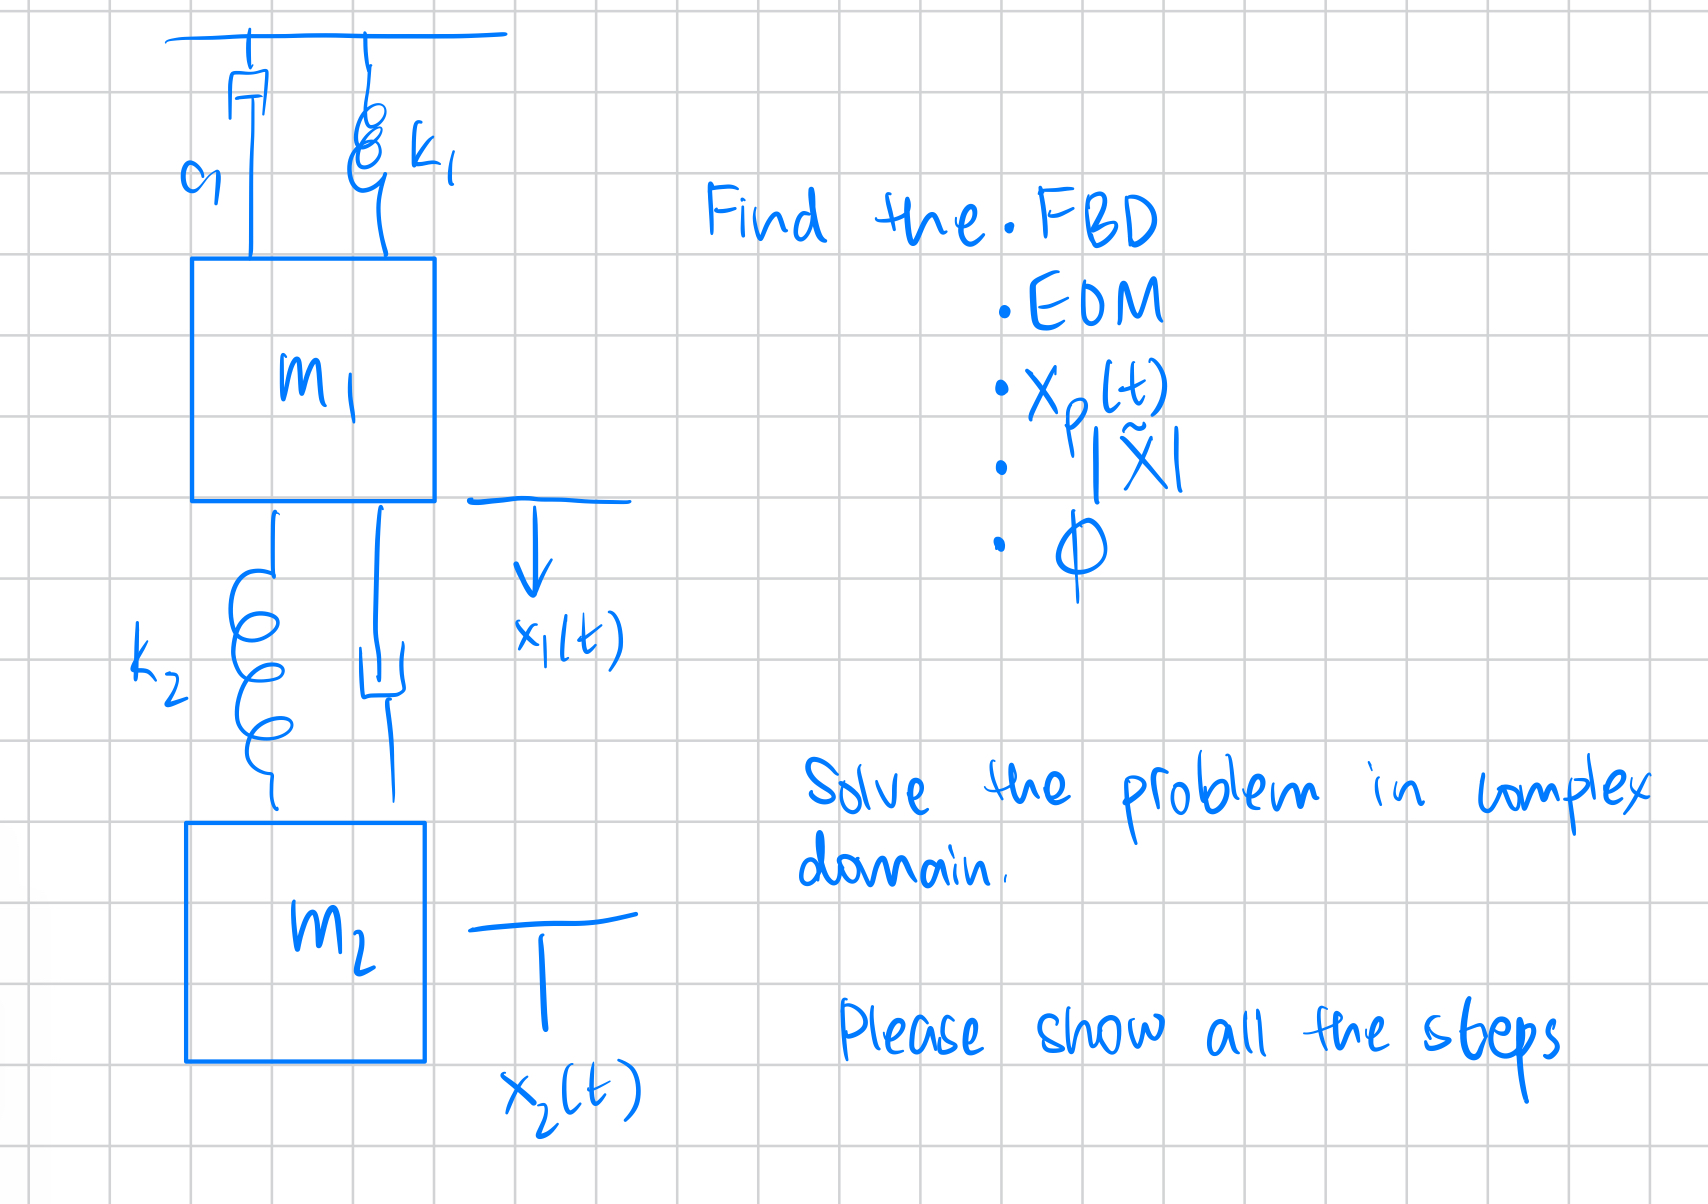 c₁
k₁
m₁
x₁(t)
k₂
m₂
x₂(t)
Find the • FBD
• EOM
• xₚ(t)
• |X̃|
• ϕ
Solve the problem in complex
domain.
Please show all the steps